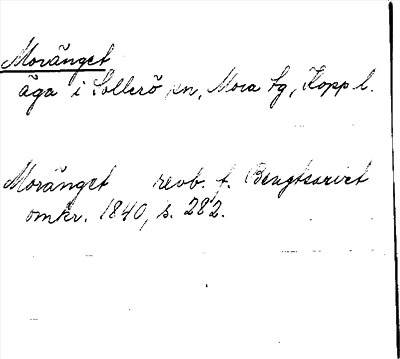 Moränget
äga i Sollerö sn, Mora tg, Kopp l.
Moränget revb. f. Bengtsarvet
omkr. 1840, s. 282.